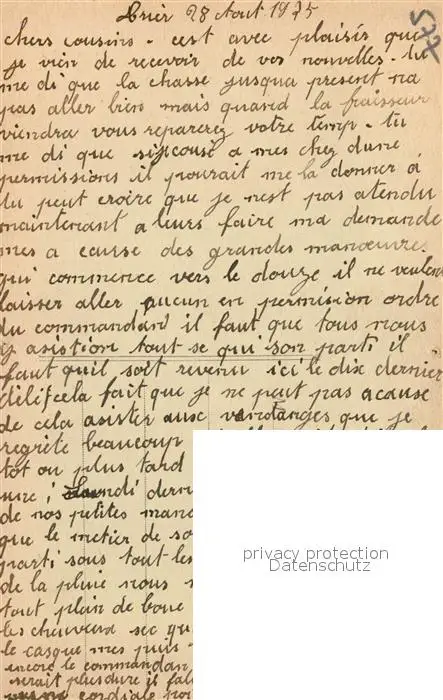 Trier 28 Aout 1925
577
chers cousins. cest avec plaisir que
je vien de recevoir de vos nouvelles. tu
me di que la chasse jusqua present na
pas aller bien mais quand la fraisseur
viendra vous reparerez votre temp. tu
me di que si jecouse a mes chez dune
permissions il pourait me la donner a
tu peut croire que je nest pas atendu
maintenant a leurs faire ma demande
mes a causse des grandes manœuvres
qui commence vers le douze il ne veulent
laisser aller aucun en permision ordre
du commandant il faut que tous nous
y asistion tout se qui son parti il
faut quil soit revenu ici le dix dernier
délif cela fait que je ne peut pas acause
de cela asister ausc vandanges que je
regrète beaucoup
tot ou plus tard
de nos petites man
que le metier de so
parti sous tout les
de la pluie nous
tout plain de boue
les cheveux sec qu
le casque mes puis
encore le commandan
serait plus dure il fal
cordiale poi
privacy protection
Datenschutz